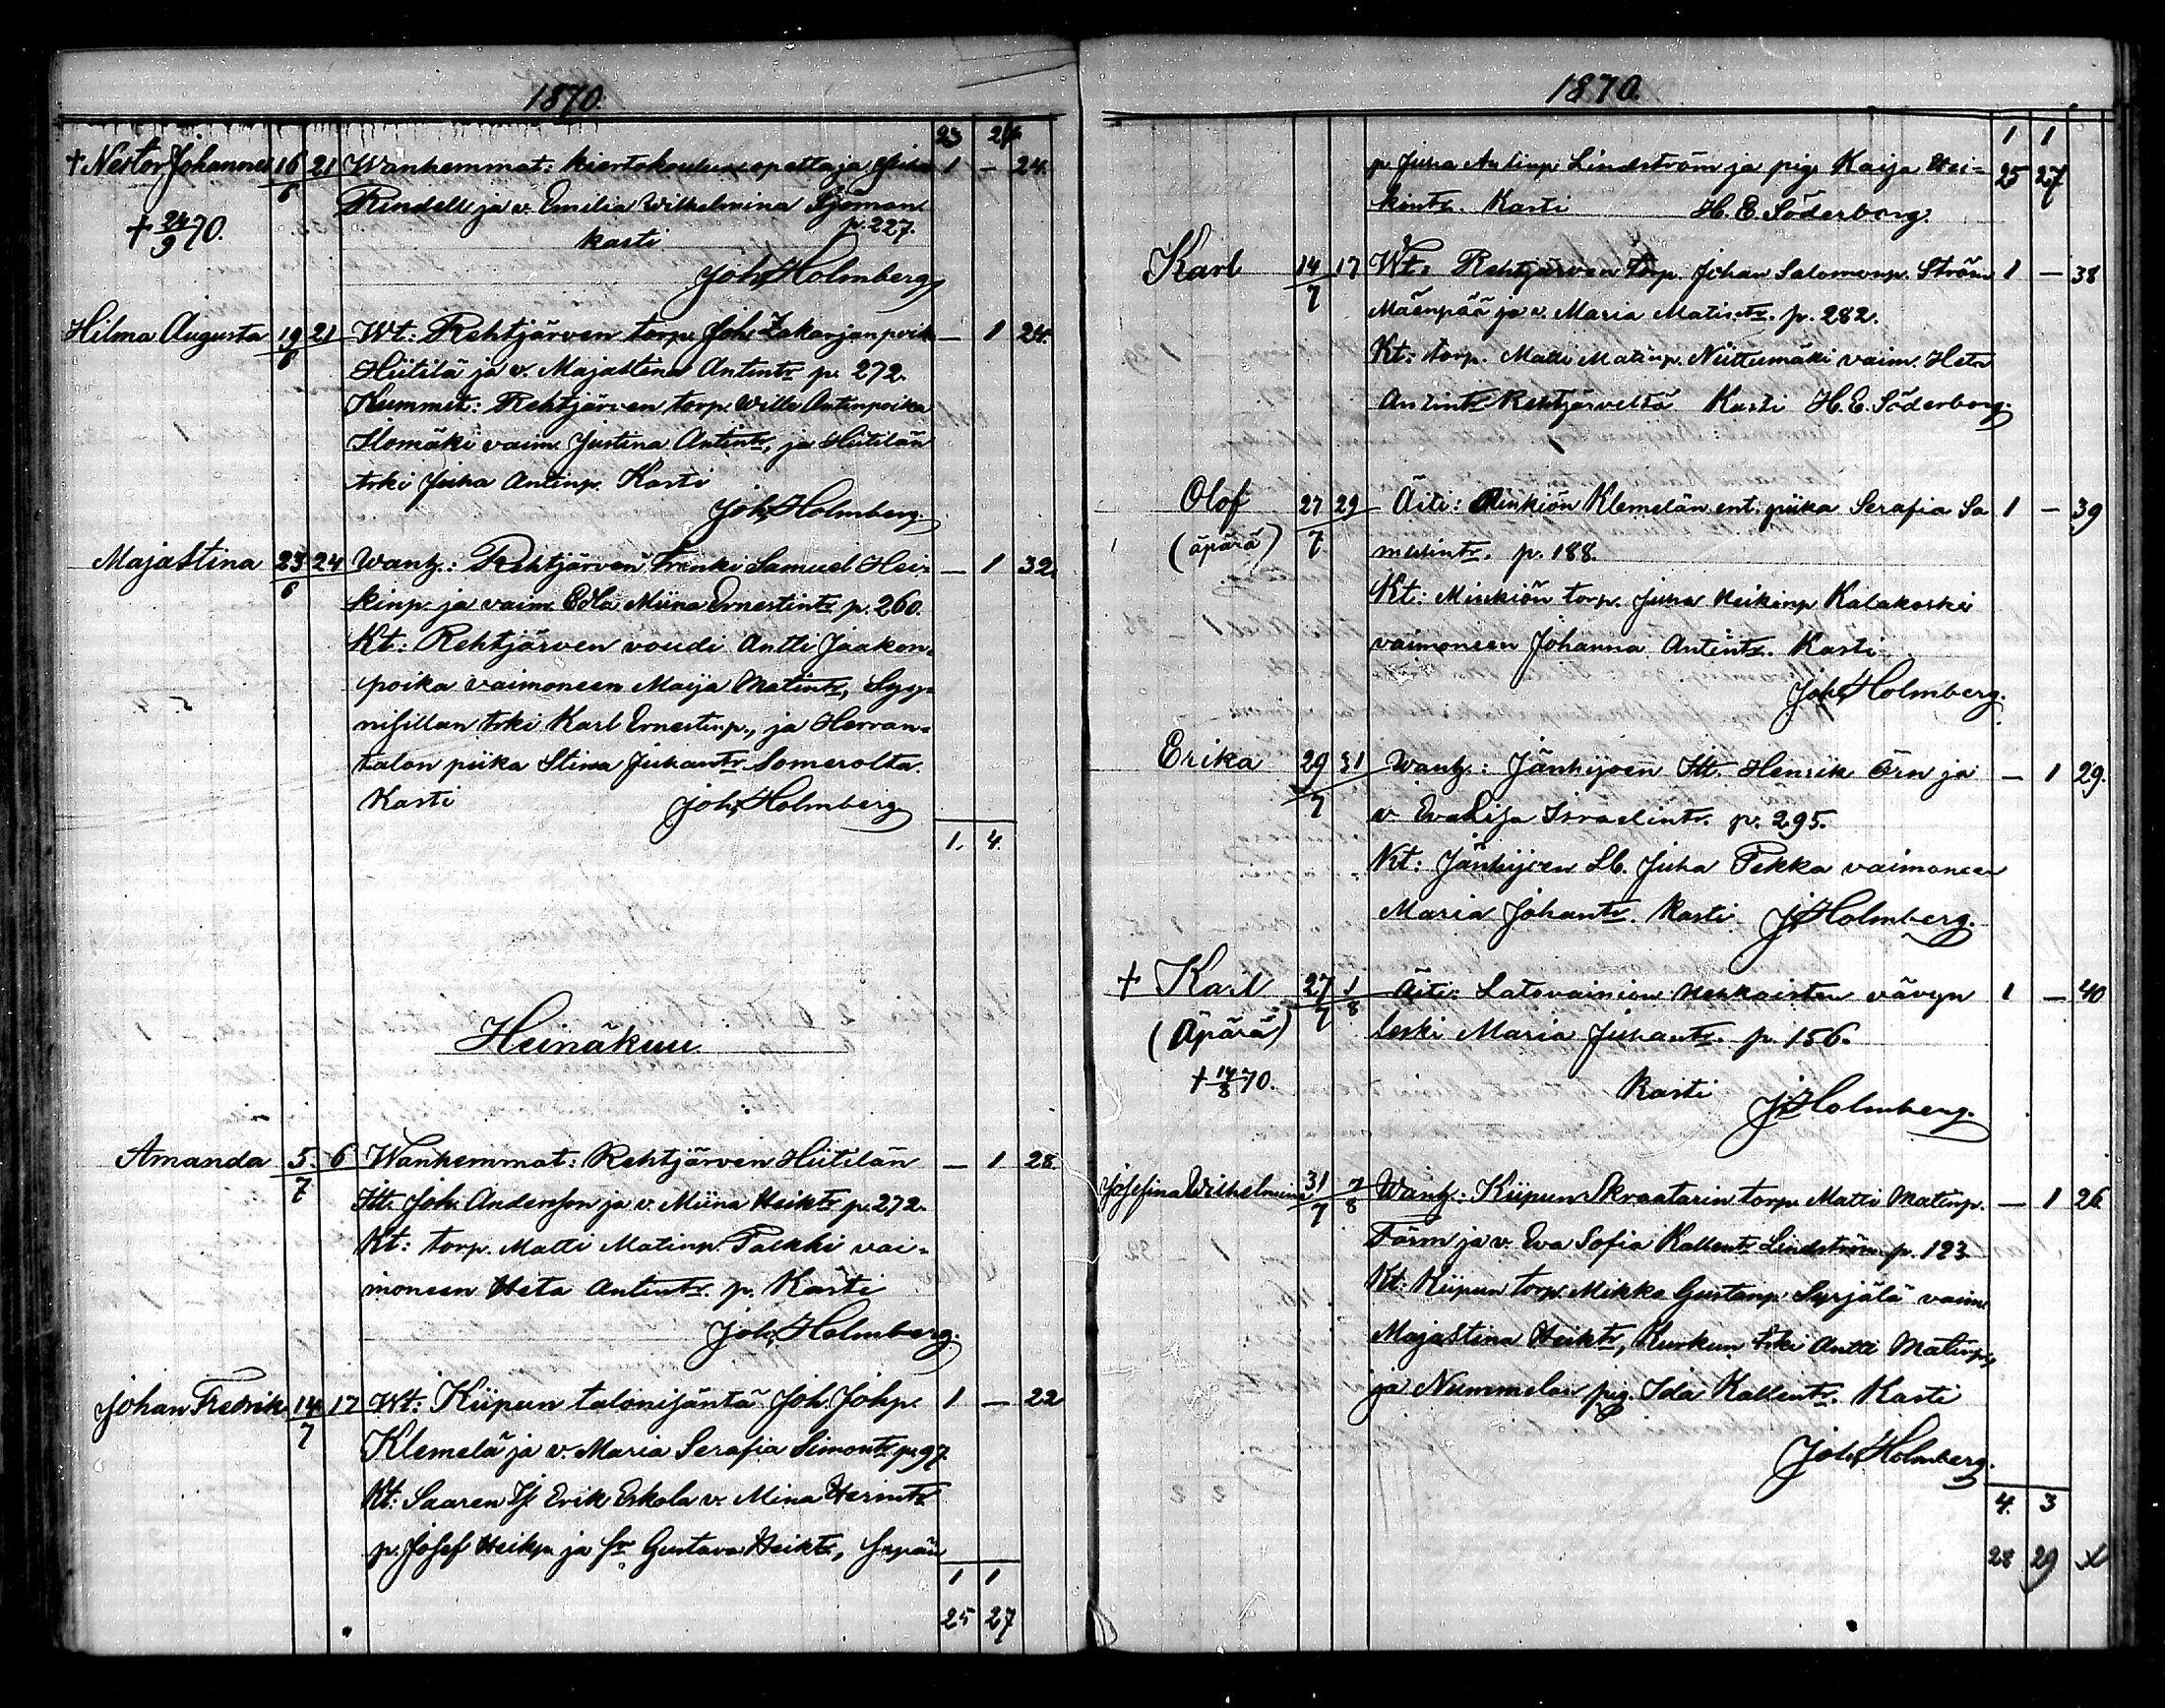 1870.
23 26
+ Nestor Johannes 16/6 21 Wanhemmat: kiertokoulunopettaja Juha 1 – 24.
+ 24/9 70. Rindell ja v. Emilia Wilhelmina Sjöman
p. 227.
kasti
Joh. Holmberg
Hilma Augusta 19/6 21 Wt: Rehtjärven torp. Joh. Zakarjanpoik – 1 24.
Hiitilä ja v. Majastina Antintr p. 272.
Kummit: Rehtjärven torp. Wille Antinpoika
Ilomäki vaim. Justina Antintr, ja Hiitilän
trki Juha Antinp. Kasti
Joh. Holmberg.
Majastina 23/6 24 Wanh.: Rehtjärven Trenki Samuel Hei- – 1 32.
kinp. ja vaim. Edla Miina Ernestintr p. 260.
Kt: Rehtjärven voudi Antti Jaakon-
poika vaimoneen Maija Matintr,
trki Karl Ernestinp., ja Herran-
talon piika Stina Juhantr Somerolta.
Kasti Joh. Holmberg
1. 4.
Heinäkuu.
Amanda 5/7 6 Wanhemmat: Rehtjärven Hiitilän – 1 28.
Itt. Joh. Andersson ja v. Miina Heiktr p. 272.
Kt: torp. Matti Matinp. Takki vai-
moneen Heta Antintr. p. Kasti
Joh. Holmberg.
Johan Fredrik 14/7 17 Wt: Kiipun talonisäntä Joh. Johp. 1 – 22
Klemelä ja v. Maria Serafia Simontr p. 97.
Kt: Saaren Erik Eskola v. Mina Herintr
p. Josef Heikp. ja Gustava Heiktr,
1 1
25 27
1870.
1 1
25 27
p. Juha Antinp. Lindström ja pig. Kaija Hei-
kintr. Kasti H. E. Söderborg.
Karl 14/7 17 Wt: Rehtjärven torp. Johan Salomonp. Ström 1 – 38
Mäenpää ja v. Maria Matintr. p. 282.
Kt: torp. Matti Matinp. Niittumäki vaim. Heta
Antintr Rehtjärveltä Kasti H. E. Söderborg.
Olof 27/7 29 Äiti: Minkiön Klemelän ent. piika Serafia Sa 1 – 39
(äpärä) muelintr. p. 188.
Kt: Minkiön torp. Juha Heikinp Kalakoski
vaimoneen Johanna Antintr. Kasti
Joh. Holmberg.
Erika 29/7 31 Wanh.: Jänhijoen Itt. Henrik Örn ja – 1 29.
v. Eva Lisa Israelintr. p. 295.
Kt: Jänhijoen Lb. Juha Pekka vaimoneen
Maria Johantr. Kasti J. Holmberg.
+ Karl 27/7 1/8 Äiti: Latovainion Nehkaisten vävyn 1 – 40
(Äpärä) leski Maria Juhantr. p. 156.
+ 14/8 70.
Kasti J. Holmberg.
Josefina Wilhelmina 31/7 7/8 Wanh.: Kiipun Skraatarin torp. Matti Matinp. – 1 26
Färm ja v. Eva Sofia Kallentr Lindström p. 123.
Kt: Kiipun torp. Mikko Gustanp. Syrjälä vaim.
Majastina Heiktr, Kurkun trki Antti Matinp.,
ja Nummelan pig. Ida Kallentr. Kasti
Joh. Holmberg.
4. 3
28 29